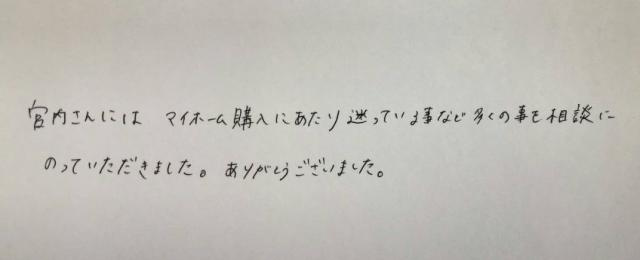 宮内さんには マイホーム購入にあたり迷っている事など多くの事を相談に
のっていただきました。ありがとうございました。